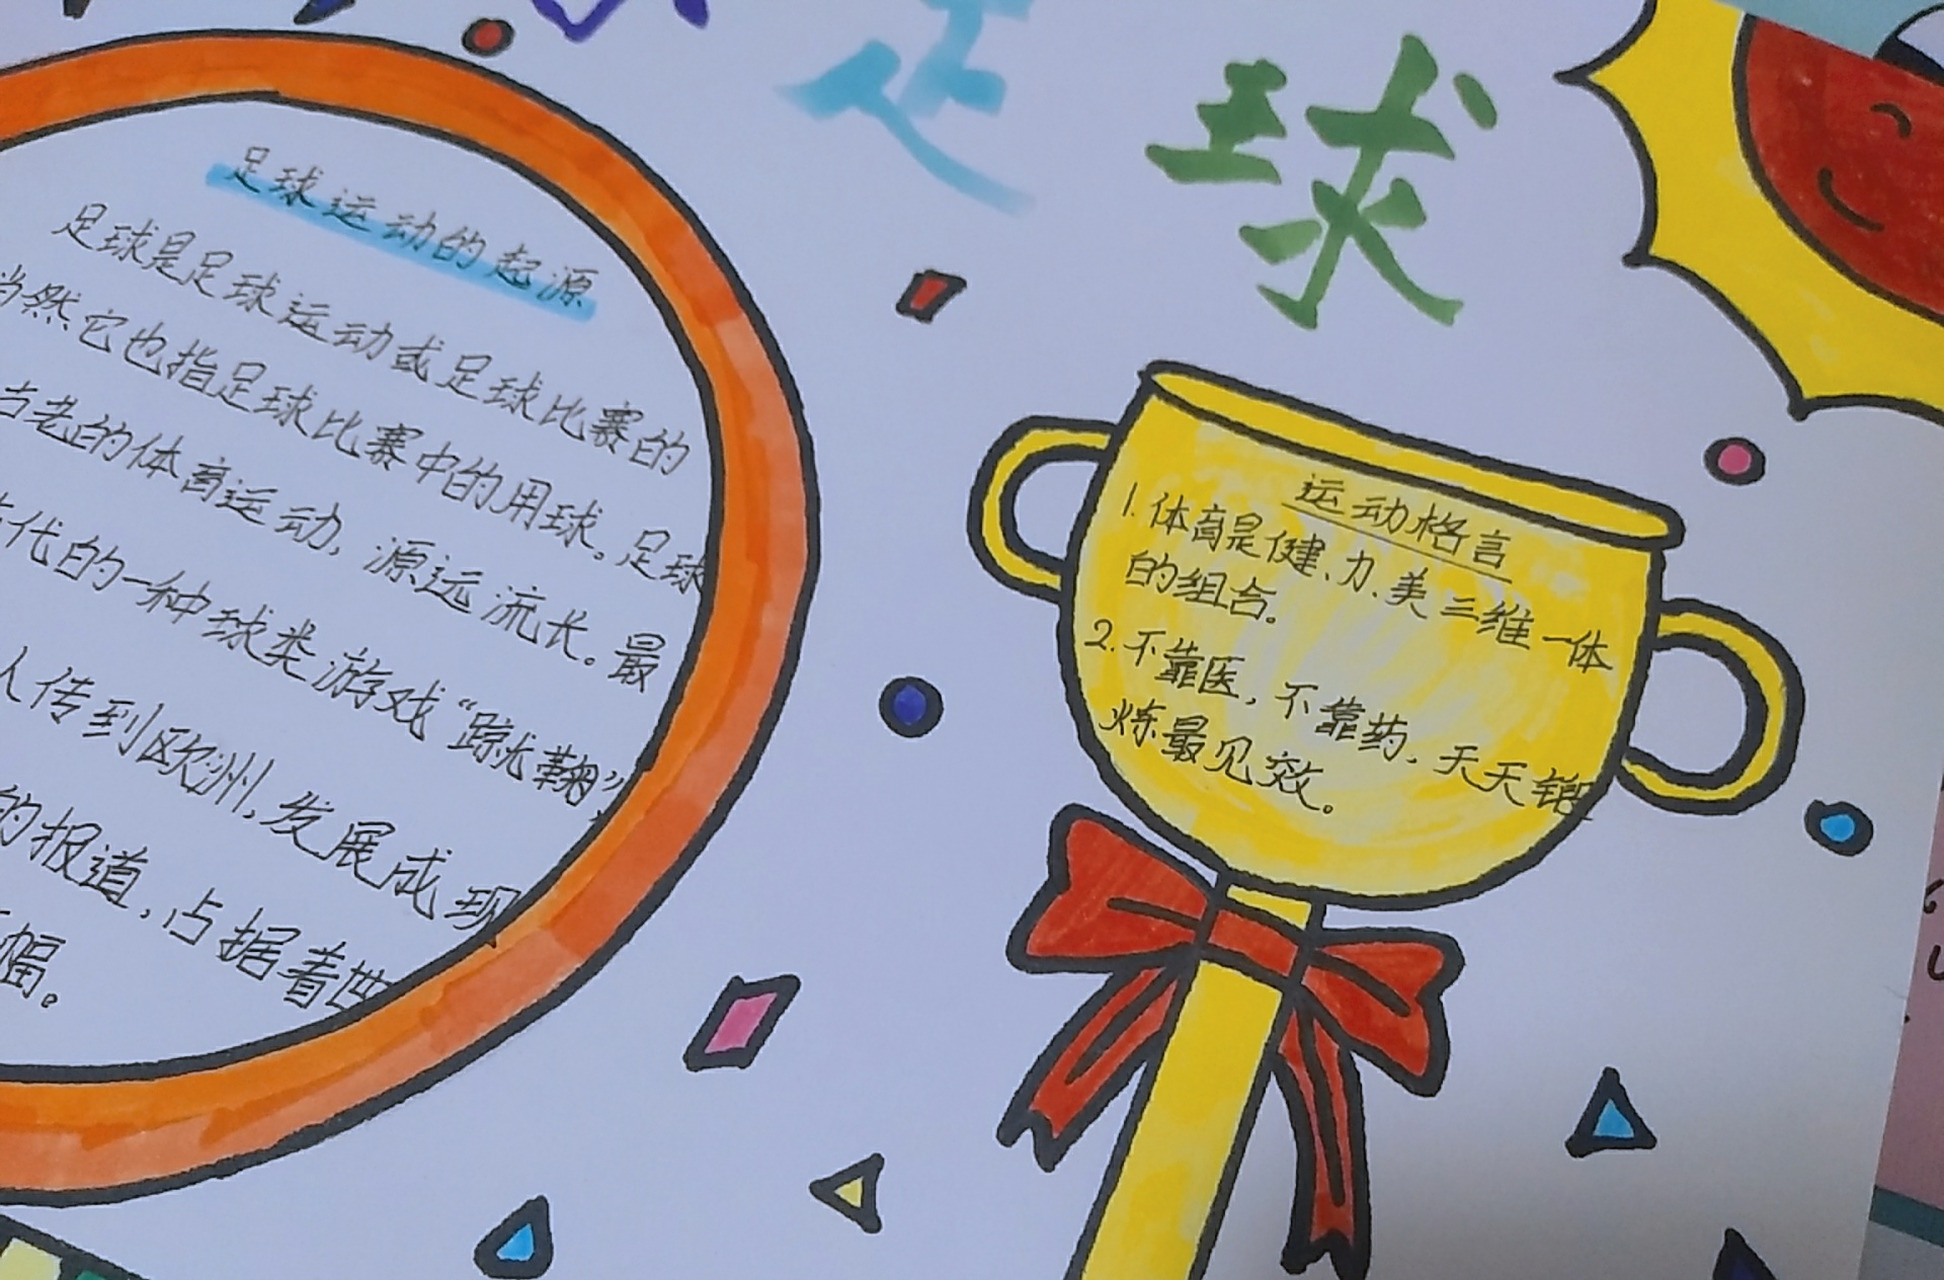 足球
足球运动的起源
足球是足球运动或足球比赛的
当然它也指足球比赛中的用球。足球
古老的体育运动,源远流长。最
古代的一种球类游戏“蹴鞠”,
人传到欧洲,发展成现
的报道,占据着世
幅。
运动格言
1.体育是健、力、美三维一体
的组合。
2.不靠医,不靠药,天天锻
炼最见效。